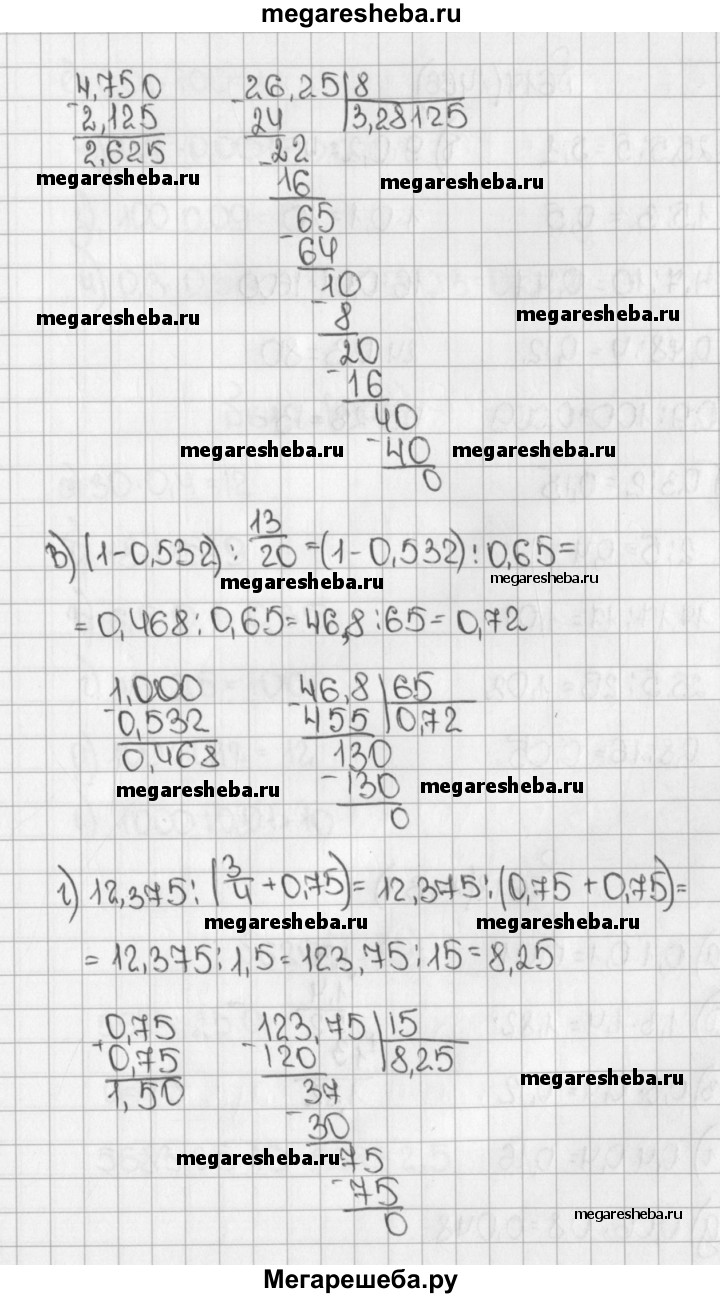 megaresheba.ru
4,750
-2,125
2,625
-26,25|8
24 3,28125
-22
16
-65
64
-10
8
-20
16
-40
40
0
megaresheba.ru megaresheba.ru
megaresheba.ru megaresheba.ru
megaresheba.ru megaresheba.ru
в) (1-0,532) : 13/20 = (1-0,532) : 0,65 =
megaresheba.ru megaresheba.ru
= 0,468 : 0,65 = 46,8 : 65 = 0,72
1,000
-0,532
0,468
-46,8|65
455 0,72
130
-130
0
megaresheba.ru megaresheba.ru
г) 12,375 : (3/4 + 0,75) = 12,375 : (0,75 + 0,75) =
megaresheba.ru megaresheba.ru
= 12,375 : 1,5 = 123,75 : 15 = 8,25
0,75
+0,75
1,50
-123,75|15
120 8,25
-37
30
-75
75
0
megaresheba.ru
megaresheba.ru
megaresheba.ru
Мегарешеба.ру